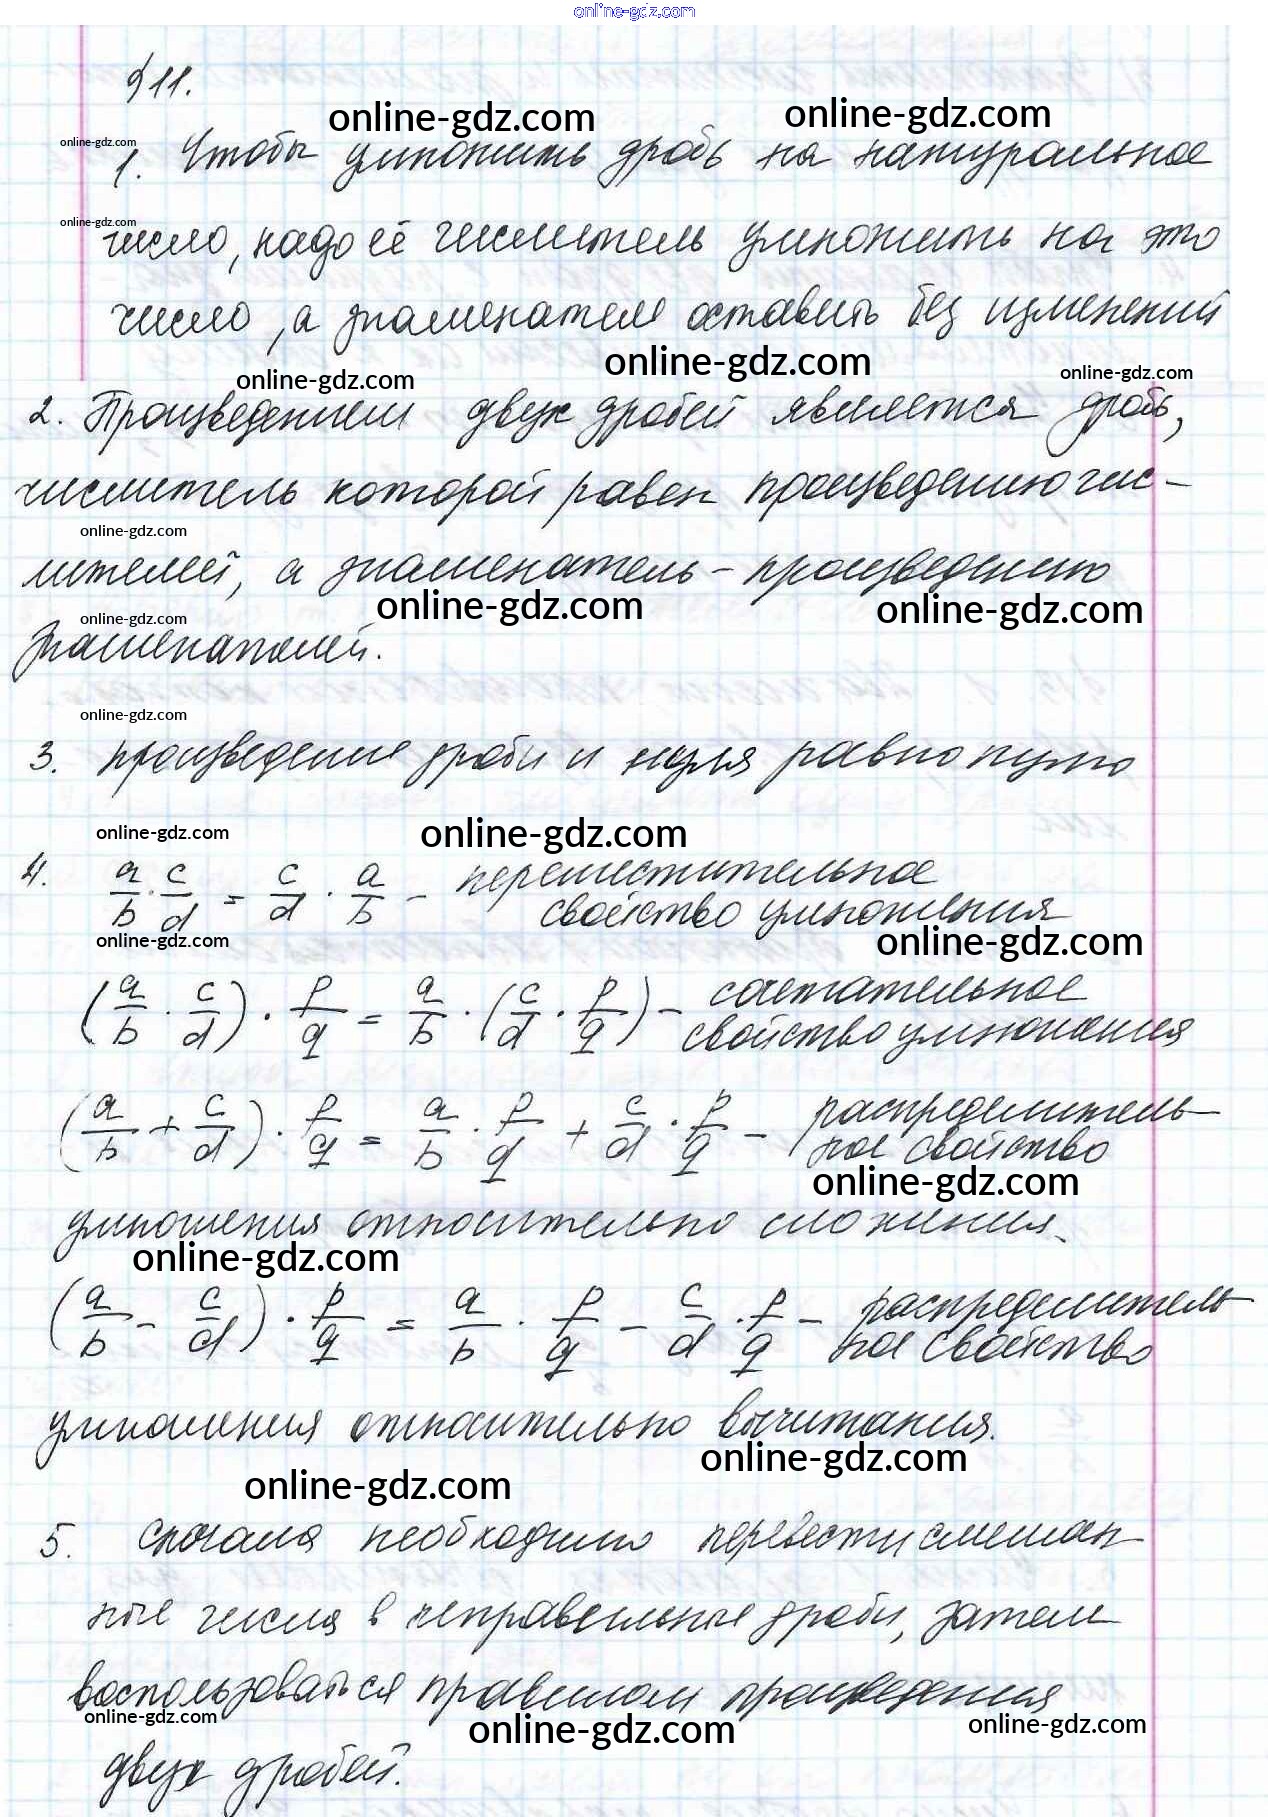 online-gdz.com
§ 11.
online-gdz.com online-gdz.com
online-gdz.com
1. Чтобы умножить дробь на натуральное
online-gdz.com
число, надо её числитель умножить на это
число, а знаменател оставить без изменений
online-gdz.com online-gdz.com online-gdz.com
2. Произведением двух дробей является дробь,
числитель которой равен произведению чис-
online-gdz.com
лителей, а знаменатель - произведению
online-gdz.com online-gdz.com online-gdz.com
знаменателей.
online-gdz.com
3. произведение дроби и нуля равно нулю
online-gdz.com online-gdz.com
4. a/b · c/d = c/d · a/b - переместительное
свойство умножения
online-gdz.com online-gdz.com
(a/b · c/d) · p/q = a/b · (c/d · p/q) - сочетательное
свойство умножения
(a/b + c/d) · p/q = a/b · p/q + c/d · p/q - распределитель
ное свойство
online-gdz.com
умножения относительно сложения.
online-gdz.com
(a/b - c/d) · p/q = a/b · p/q - c/d · p/q - распределитель
ное свойство
умножения относительно вычитания.
online-gdz.com online-gdz.com
5. Сначала необходимо перевести смешан
ные числа в неправильные дроби, затем
воспользоваться правилом произведения
online-gdz.com online-gdz.com online-gdz.com
двух дробей.